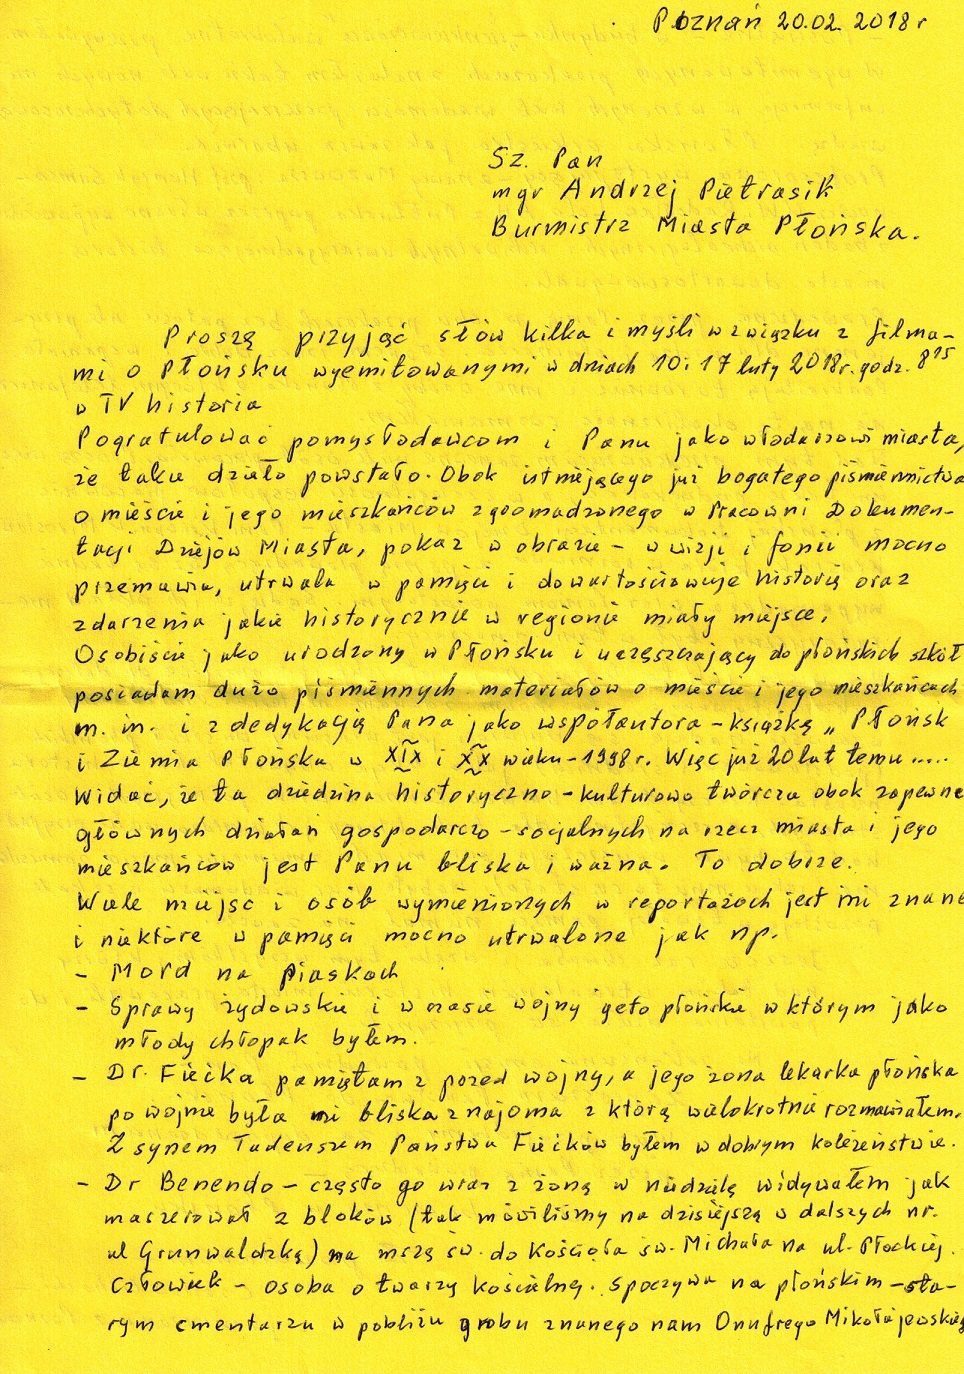 Poznań 20.02. 2018 r
Sz. Pan
mgr Andrzej Pietrasik
Burmistrz Miasta Płońska.
Proszę przyjąć słów kilka i myśli w związku z filma-
mi o Płońsku wyemitowanymi w dniach 10 i 17 luty 2018r. godz. 8¹⁵
w TV historia
Pogratulować pomysłodawcom i Panu jako włodarzowi miasta,
że takie dzieło powstało. Obok istniejącego już bogatego piśmiennictwa
o mieście i jego mieszkańców zgromadzonego w Pracowni Dokumen-
tacji Dziejów Miasta, pokaz w obrazie - w wizji i fonii mocno
przemawia, utrwala w pamięci i dowartościowuje historię oraz
zdarzenia jakie historycznie w regionie miały miejsce.
Osobiście jako urodzony w Płońsku i uczęszczający do płońskich szkół
posiadam dużo piśmiennych materiałów o mieście i jego mieszkańcach
m. in. i z dedykacją Pana jako współautora - książkę „Płońsk
i Ziemia Płońska w XIX i XX wieku - 1998 r. Więc już 20 lat temu .....
Widać, że ta dziedzina historyczno - kulturowo twórcza obok zapewne
głównych działań gospodarczo - socjalnych na rzecz miasta i jego
mieszkańców jest Panu bliska i ważna. To dobrze.
Wiele miejsc i osób wymienionych w reportażach jest mi znane
i niektóre w pamięci mocno utrwalone jak np.
- Mord na Piaskach
- Sprawy żydowskie i w czasie wojny geto płońskie w którym jako
młody chłopak byłem.
- Dr. Fiećka pamiętam z przed wojny, a jego żona lekarka płońska
po wojnie była mi bliska znajoma z którą wielokrotnie rozmawiałem.
Z synem Tadeuszem Państwa Fiećków byłem w dobrym koleżeństwie.
- Dr Benendo - często go wraz z żoną w niedzielę widywałem jak
maszerował z bloków (tak mówiliśmy na dzisiejszą w dalszych nr.
ul Grunwaldzką) na mszą św. do Kościoła św. Michała na ul. Płockiej.
Człowiek - osoba o twarzy kościelnej. Spoczywa na płońskim - sta-
rym cmentarzu w pobliżu grobu znanego nam Onufrego Mikołajewskiego